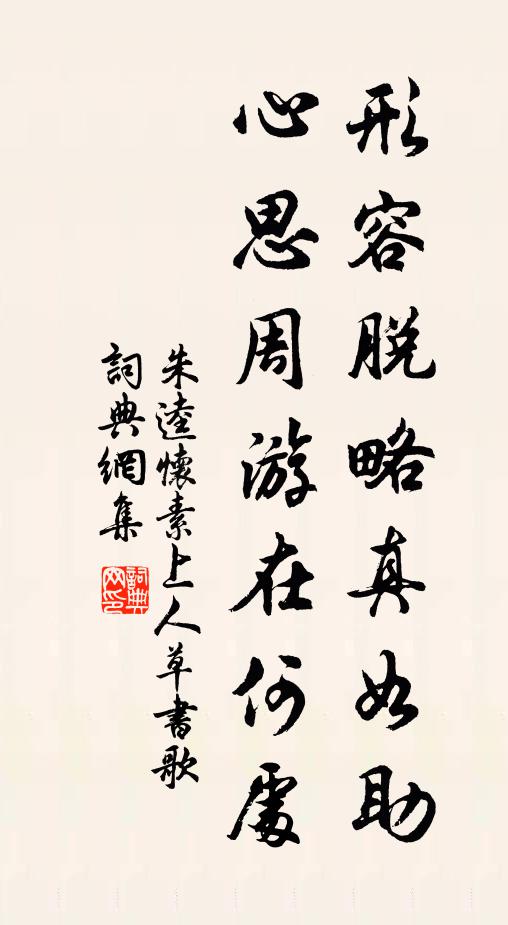 形容脱略真如助
心思周游在何處
朱逵懷素上人草書歌
詞典網集
詞典網印